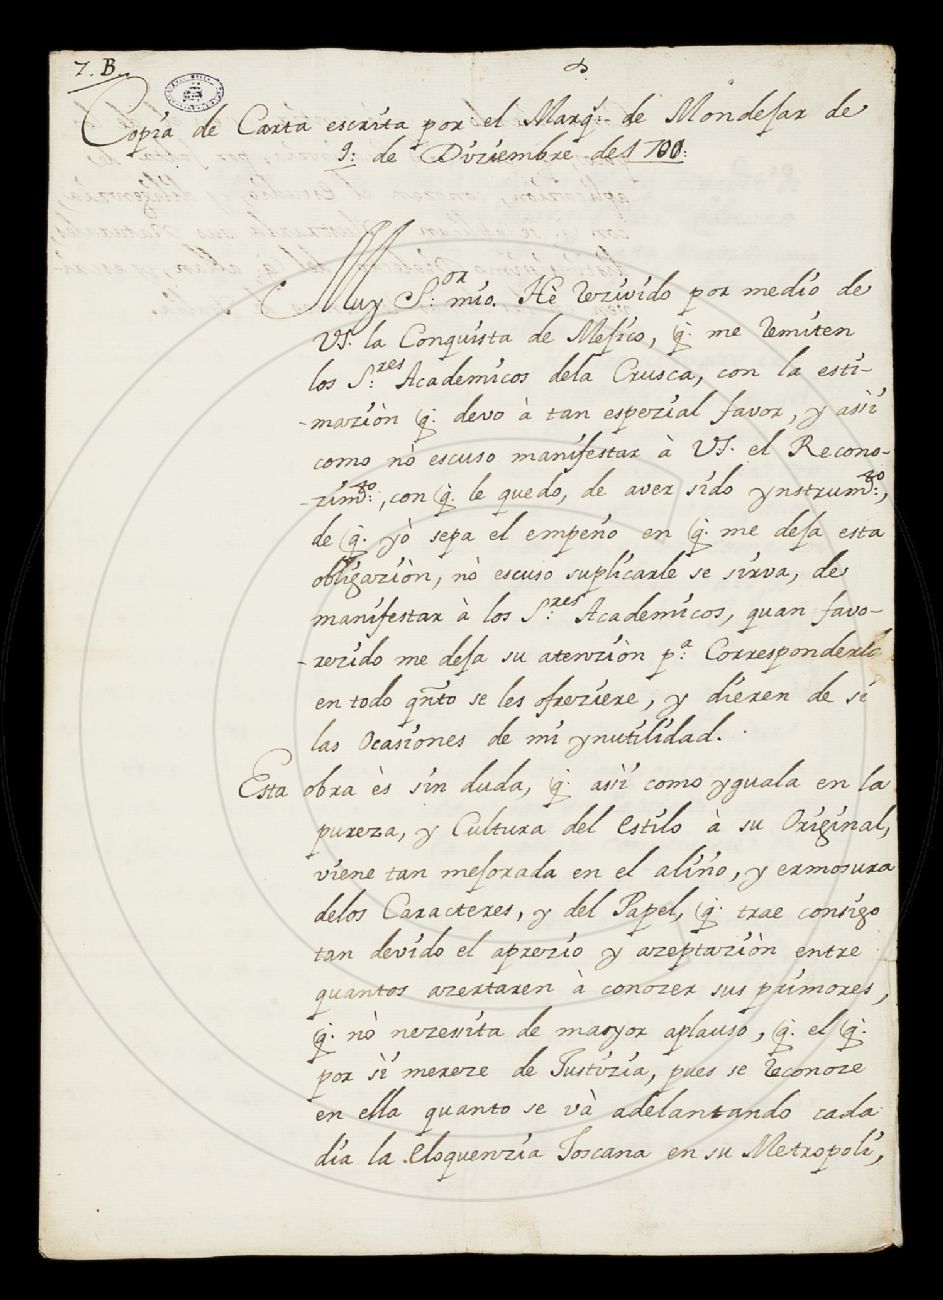 7. B.
Copia de Carta escrita por el Marq.s de Mondejar de
9: de Diziembre de 1700:
Muy S.or mio. Hè rezivido por medio de
VS. la Conquista de Mejico, q. me remiten
los S.res Academicos dela Crusca, con la esti-
-maziòn q. devo à tan espezial favor, y assì
como nò escuso manifestar à VS. el Recono-
-zim.to, con q. le quedo, de aver sido ynstrum.to,
de q. yò sepa el empeño en q. me deja esta
obligaziòn, nò escuso suplicarle se sirva, de
manifestar à los S.res Academicos, quan favo-
-rezido me deja su atenziòn p.a Corresponderle
en todo qnto se les ofreziere, y dieren de si
las Ocasiones de mi ynutilidad.
Esta obra ès sin duda, q. assì como yguala en la
pureza, y Cultura del estilo à su Original,
viene tan mejorada en el aliño, y ermosura
delos Caracteres, y del Papel, q. trae consigo
tan devido el aprezio y azeptaziòn entre
quantos azertaren à conozer sus primores,
q. nò nezessita de mayor aplauso, q. el q.
por sì mereze de Justizia, pues se reconoze
en ella quanto se và adelantando cada
dia la eloquenzia Toscana en su Metropoli,